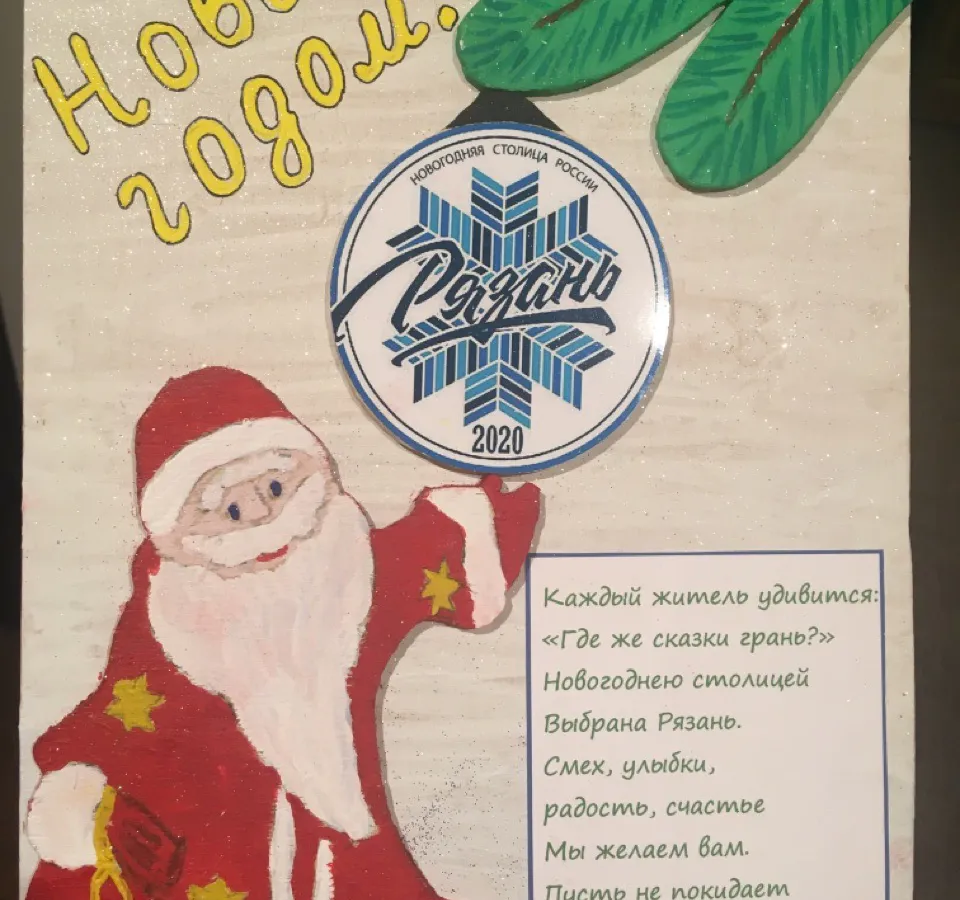 Новым
годом.
НОВОГОДНЯЯ СТОЛИЦА РОССИИ
Рязань
2020
Каждый житель удивится:
«Где же сказки грань?»
Новогоднею столицей
Выбрана Рязань.
Смех, улыбки,
радость, счастье
Мы желаем вам.
Пусть не покидает